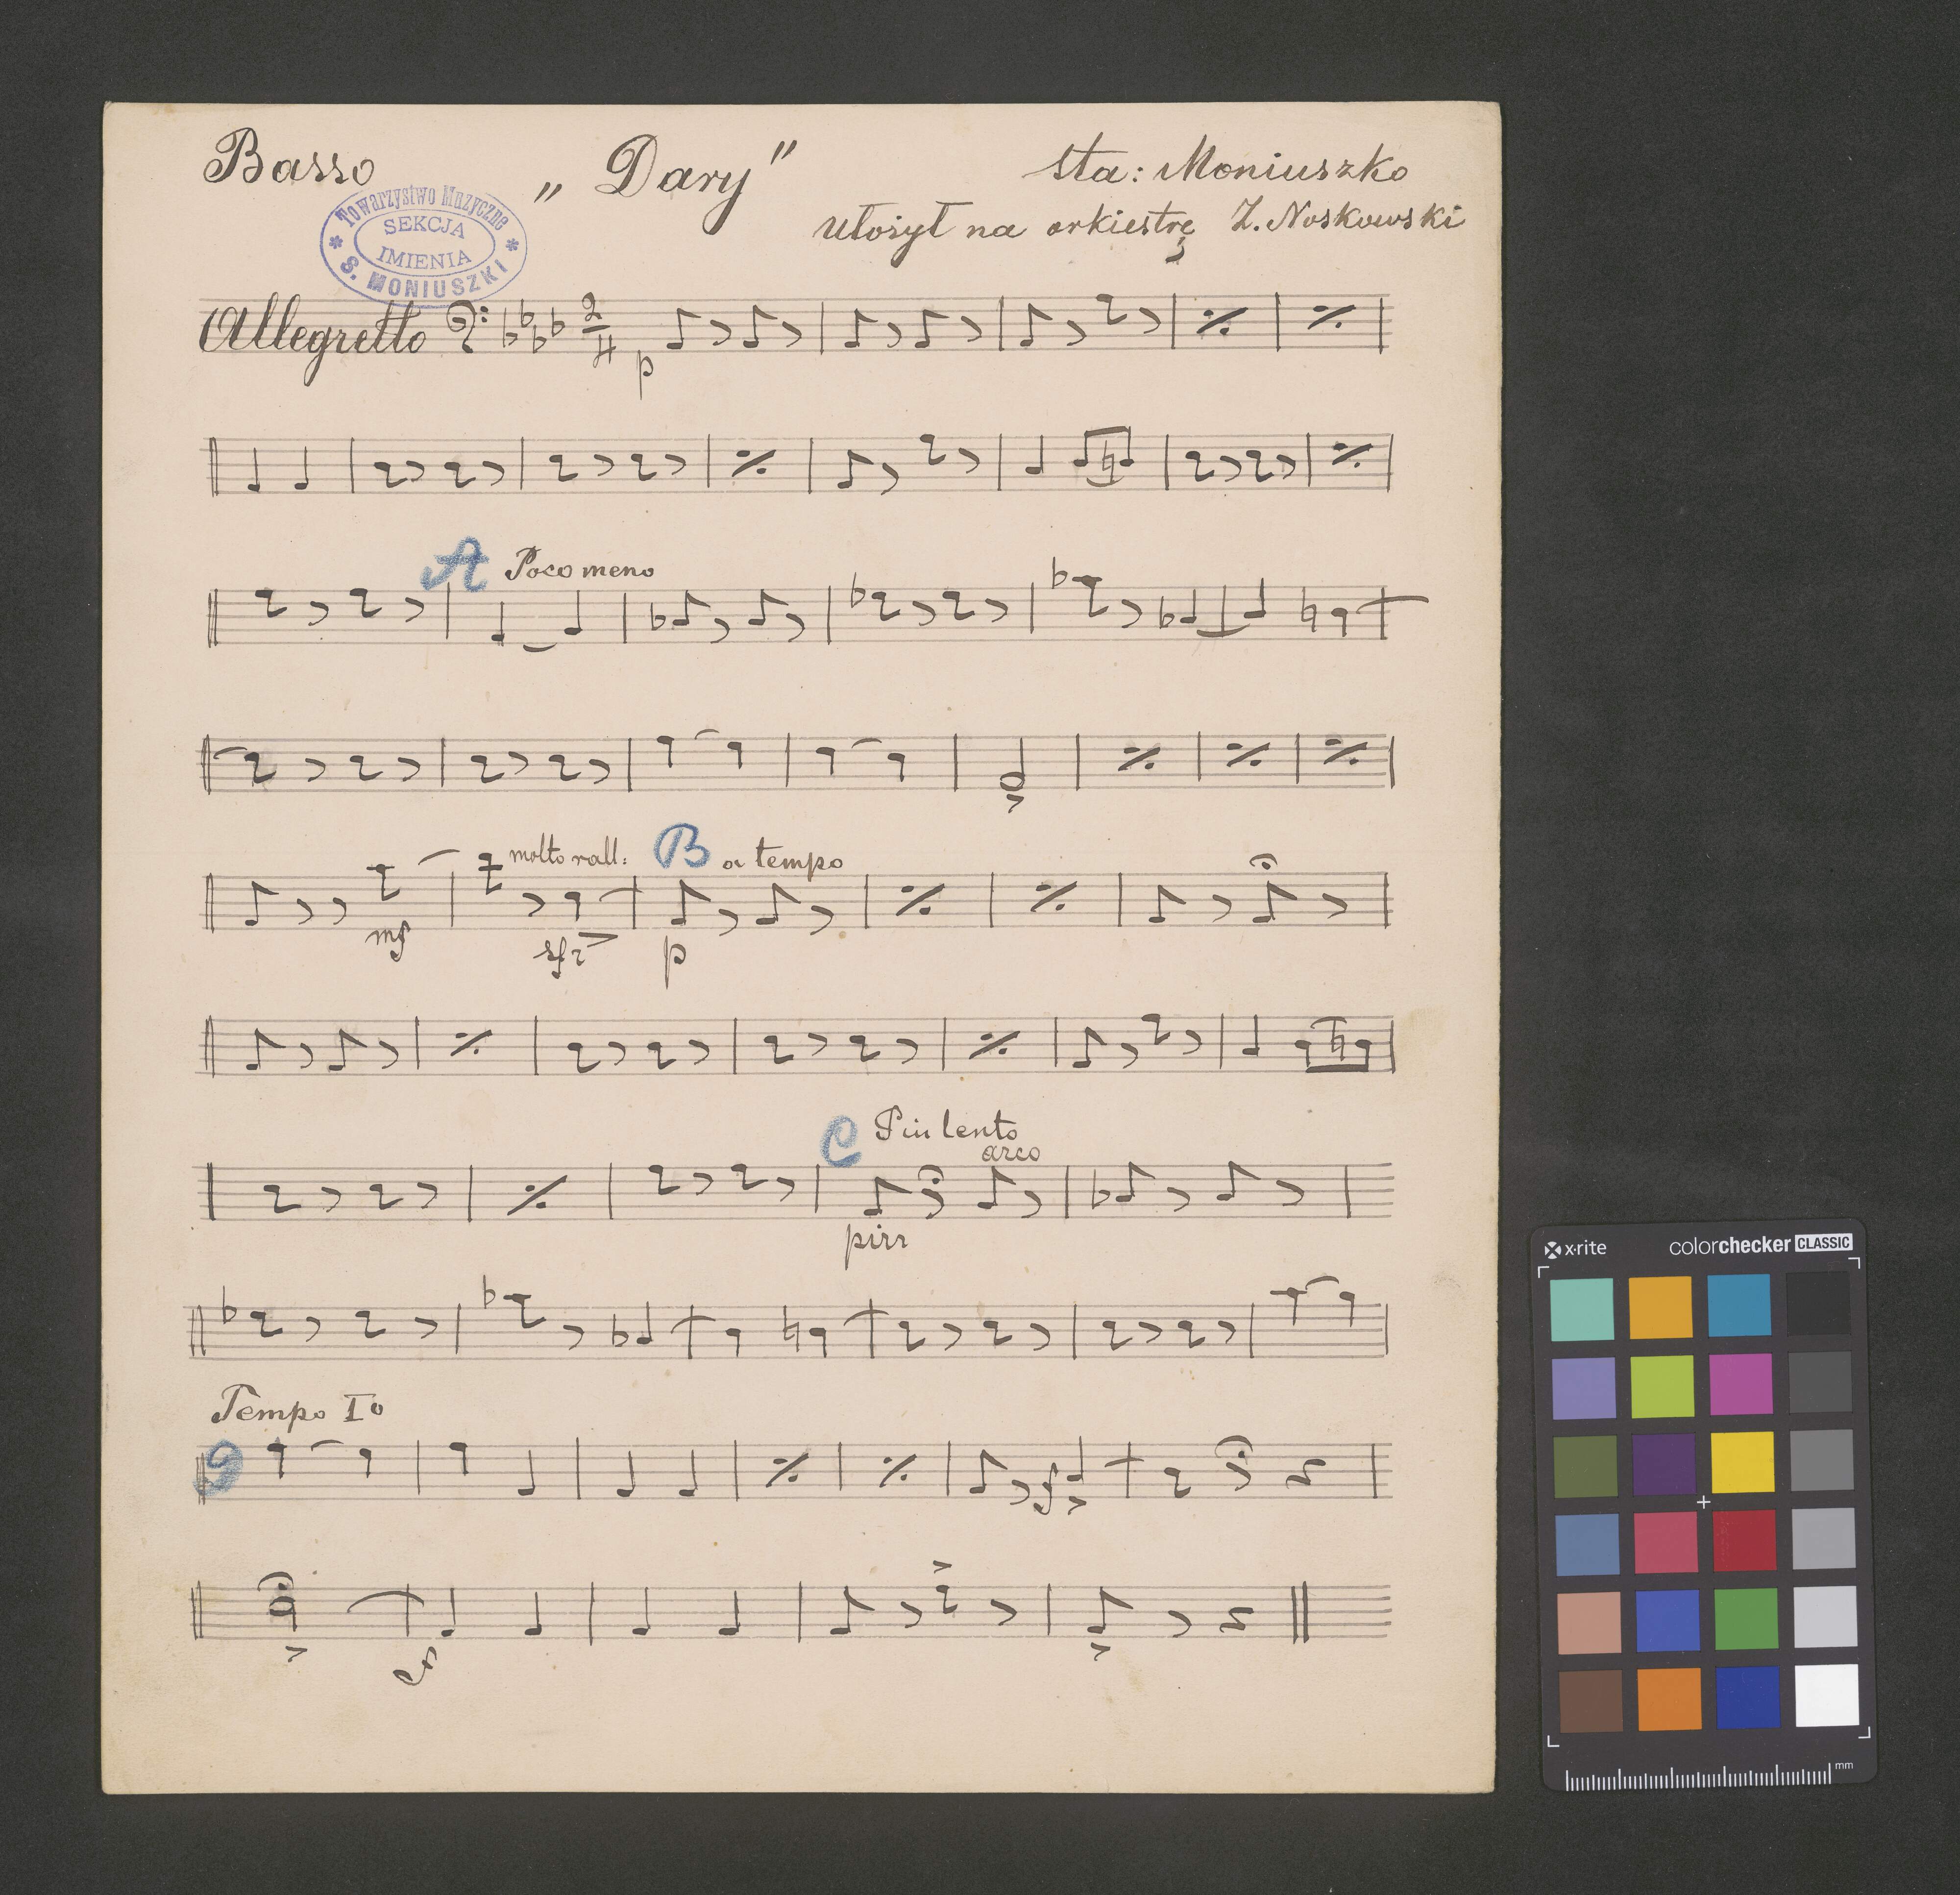 Basso
„ Dary "
Sta: Moniuszko
Ułożył na orkiestrę Z. Noskowski
Towarzystwo Muzyczne
SEKCJA
IMIENIA
S. MONIUSZKI
Allegretto
2
4
p
A Poco meno
molto rall:
B a tempo
mf
sfz
p
C Piu lento
arco
pizz
Tempo I°
sf
x·rite colorchecker CLASSIC
mm